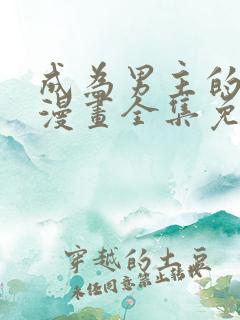 成為男主的
漫畫全集免
穿越的土豆
未经同意禁止转载